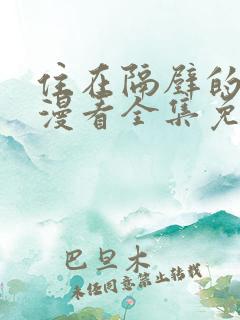 住在隔壁的
漫者全集免
巴旦木
未经同意禁止转载